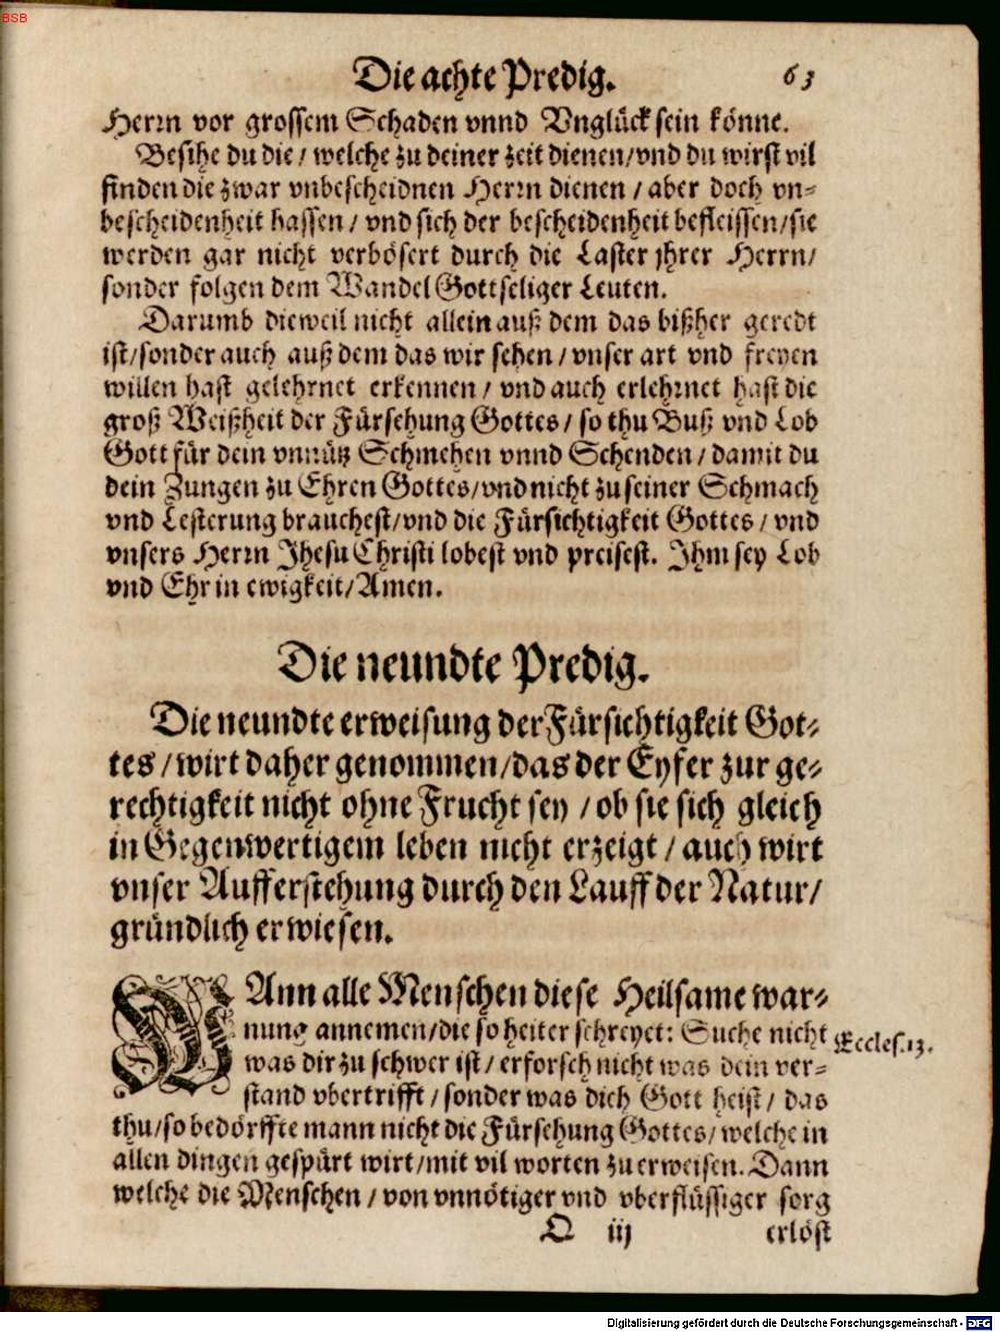 BSB
Die achte Predig. 63
Herrn vor grossem Schaden vnnd Vnglück sein könne.
Besihe du die / welche zu deiner zeit dienen/vnd du wirst vil
finden die zwar vnbescheidnen Herrn dienen / aber doch vn=
bescheidenheit hassen / vnd sich der bescheidenheit befleissen/sie
werden gar nicht verbösert durch die Laster jhrer Herrn/
sonder folgen dem Wandel Gottseliger Leuten.
Darumb dieweil nicht allein auß dem das bißher geredt
ist/sonder auch auß dem das wir sehen / vnser art vnd freyen
willen hast gelehrnet erkennen / vnd auch erlehrnet hast die
groß Weißheit der Fürsehung Gottes / so thu Buß vnd Lob
Gott für dein vnnütz Schmehen vnnd Schenden / damit du
dein Zungen zu Ehren Gottes/vnd nicht zu seiner Schmach
vnd Lesterung brauchest/vnd die Fürsichtigkeit Gottes / vnd
vnsers Herrn Jhesu Christi lobest vnd preisest. Jhm sey Lob
vnd Ehr in ewigkeit/Amen.
Die neundte Predig.
Die neundte erweisung der Fürsichtigkeit Got=
tes / wirt daher genommen/das der Eyfer zur ge=
rechtigkeit nicht ohne Frucht sey / ob sie sich gleich
in Gegenwertigem leben nicht erzeigt / auch wirt
vnser Aufferstehung durch den Lauff der Natur/
gründlich erwiesen.
WAnn alle Menschen diese Heilsame war=
nung annemen/die so heiter schreyet: Suche nicht Eccles.13.
was dir zu schwer ist / erforsch nicht was dein ver=
stand vbertrifft / sonder was dich Gott heist / das
thu/so bedörffte mann nicht die Fürsehung Gottes/welche in
allen dingen gespürt wirt/mit vil worten zu erweisen. Dann
welche die Menschen / von vnnötiger vnd vberflüssiger sorg
Q iij erlöst
Digitalisierung gefördert durch die Deutsche Forschungsgemeinschaft - DFG